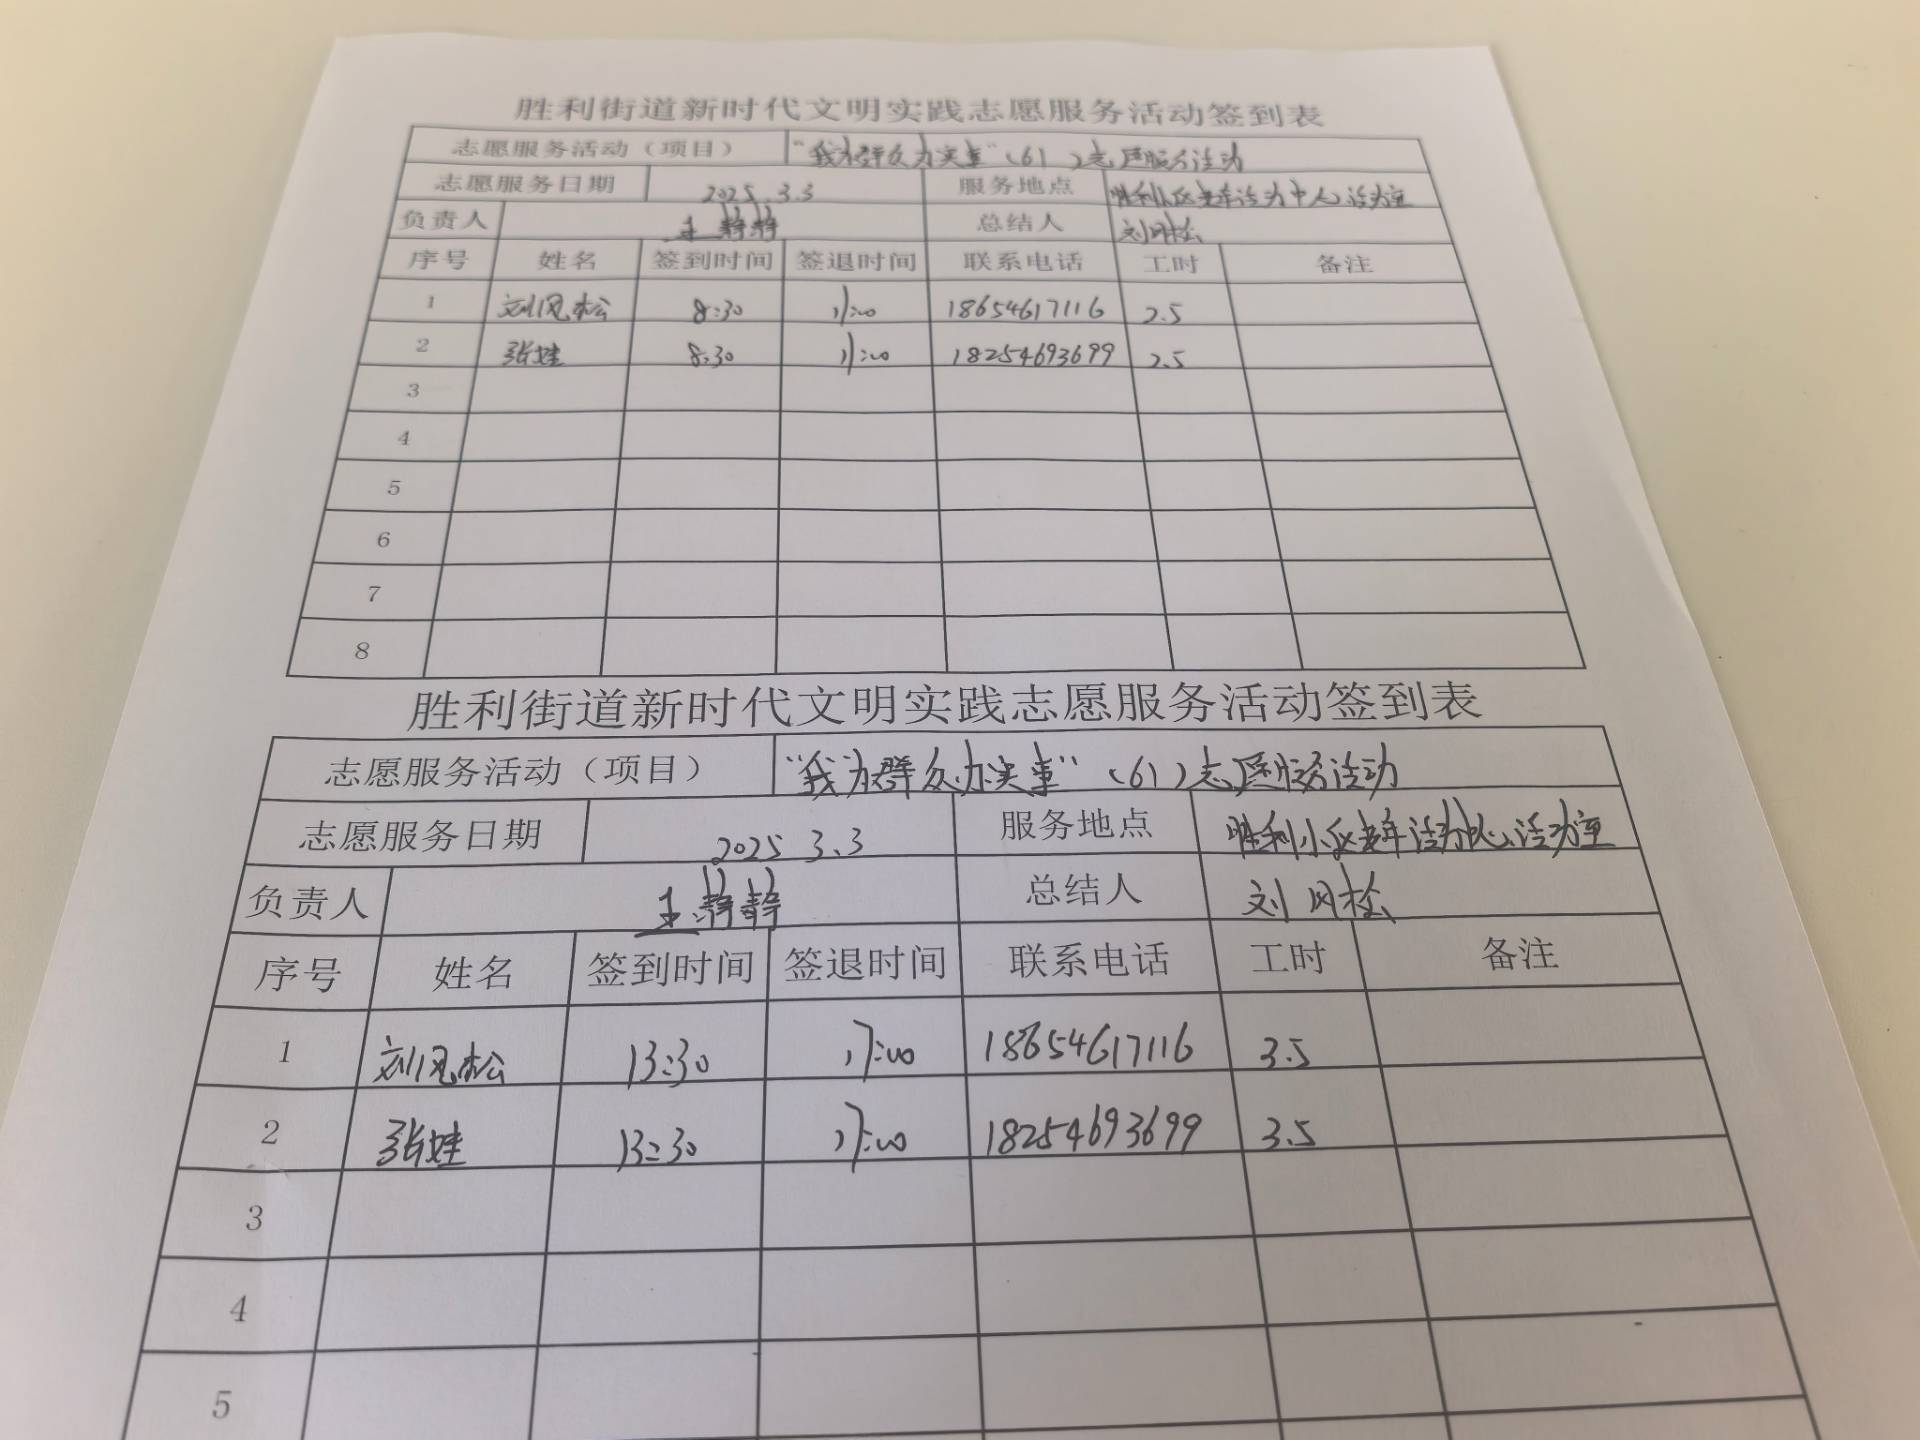 胜利街道新时代文明实践志愿服务活动签到表
志愿服务活动（项目） “我为群众办实事”（61）志愿服务活动
志愿服务日期 2025.3.3 服务地点 胜利小区老年活动中心活动室
负责人 王静静 总结人 刘风松
序号 姓名 签到时间 签退时间 联系电话 工时 备注
1 刘风松 8:30 11:00 18654617116 2.5
2 张娃 8:30 11:00 18254693699 2.5
3
4
5
6
7
8
胜利街道新时代文明实践志愿服务活动签到表
志愿服务活动（项目） “我为群众办实事”（61）志愿服务活动
志愿服务日期 2025 3.3 服务地点 胜利小区老年活动中心活动室
负责人 王静静 总结人 刘风松
序号 姓名 签到时间 签退时间 联系电话 工时 备注
1 刘风松 13:30 17:00 18654617116 3.5
2 张娃 13:30 17:00 18254693699 3.5
3
4
5